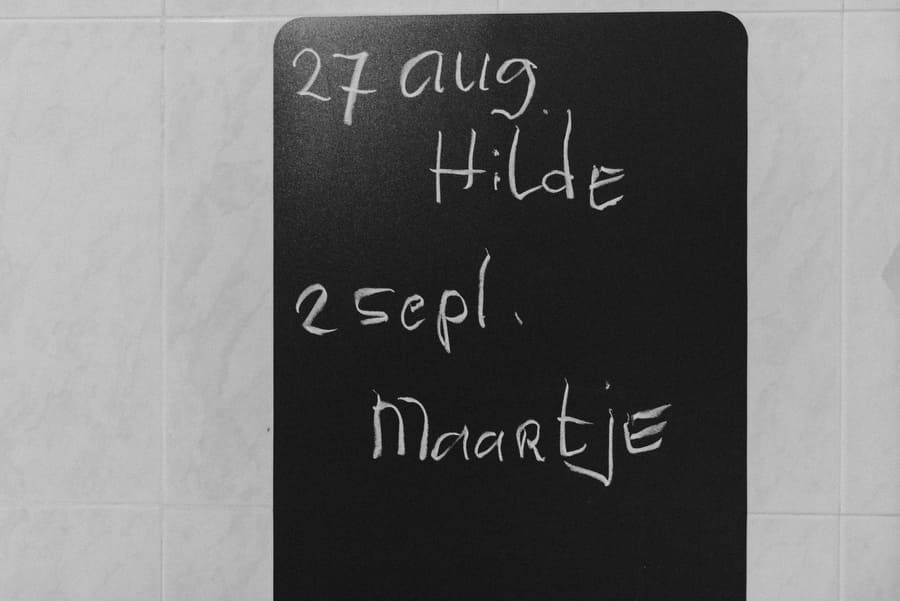 27 aug.
Hilde
2 sept.
Maartje